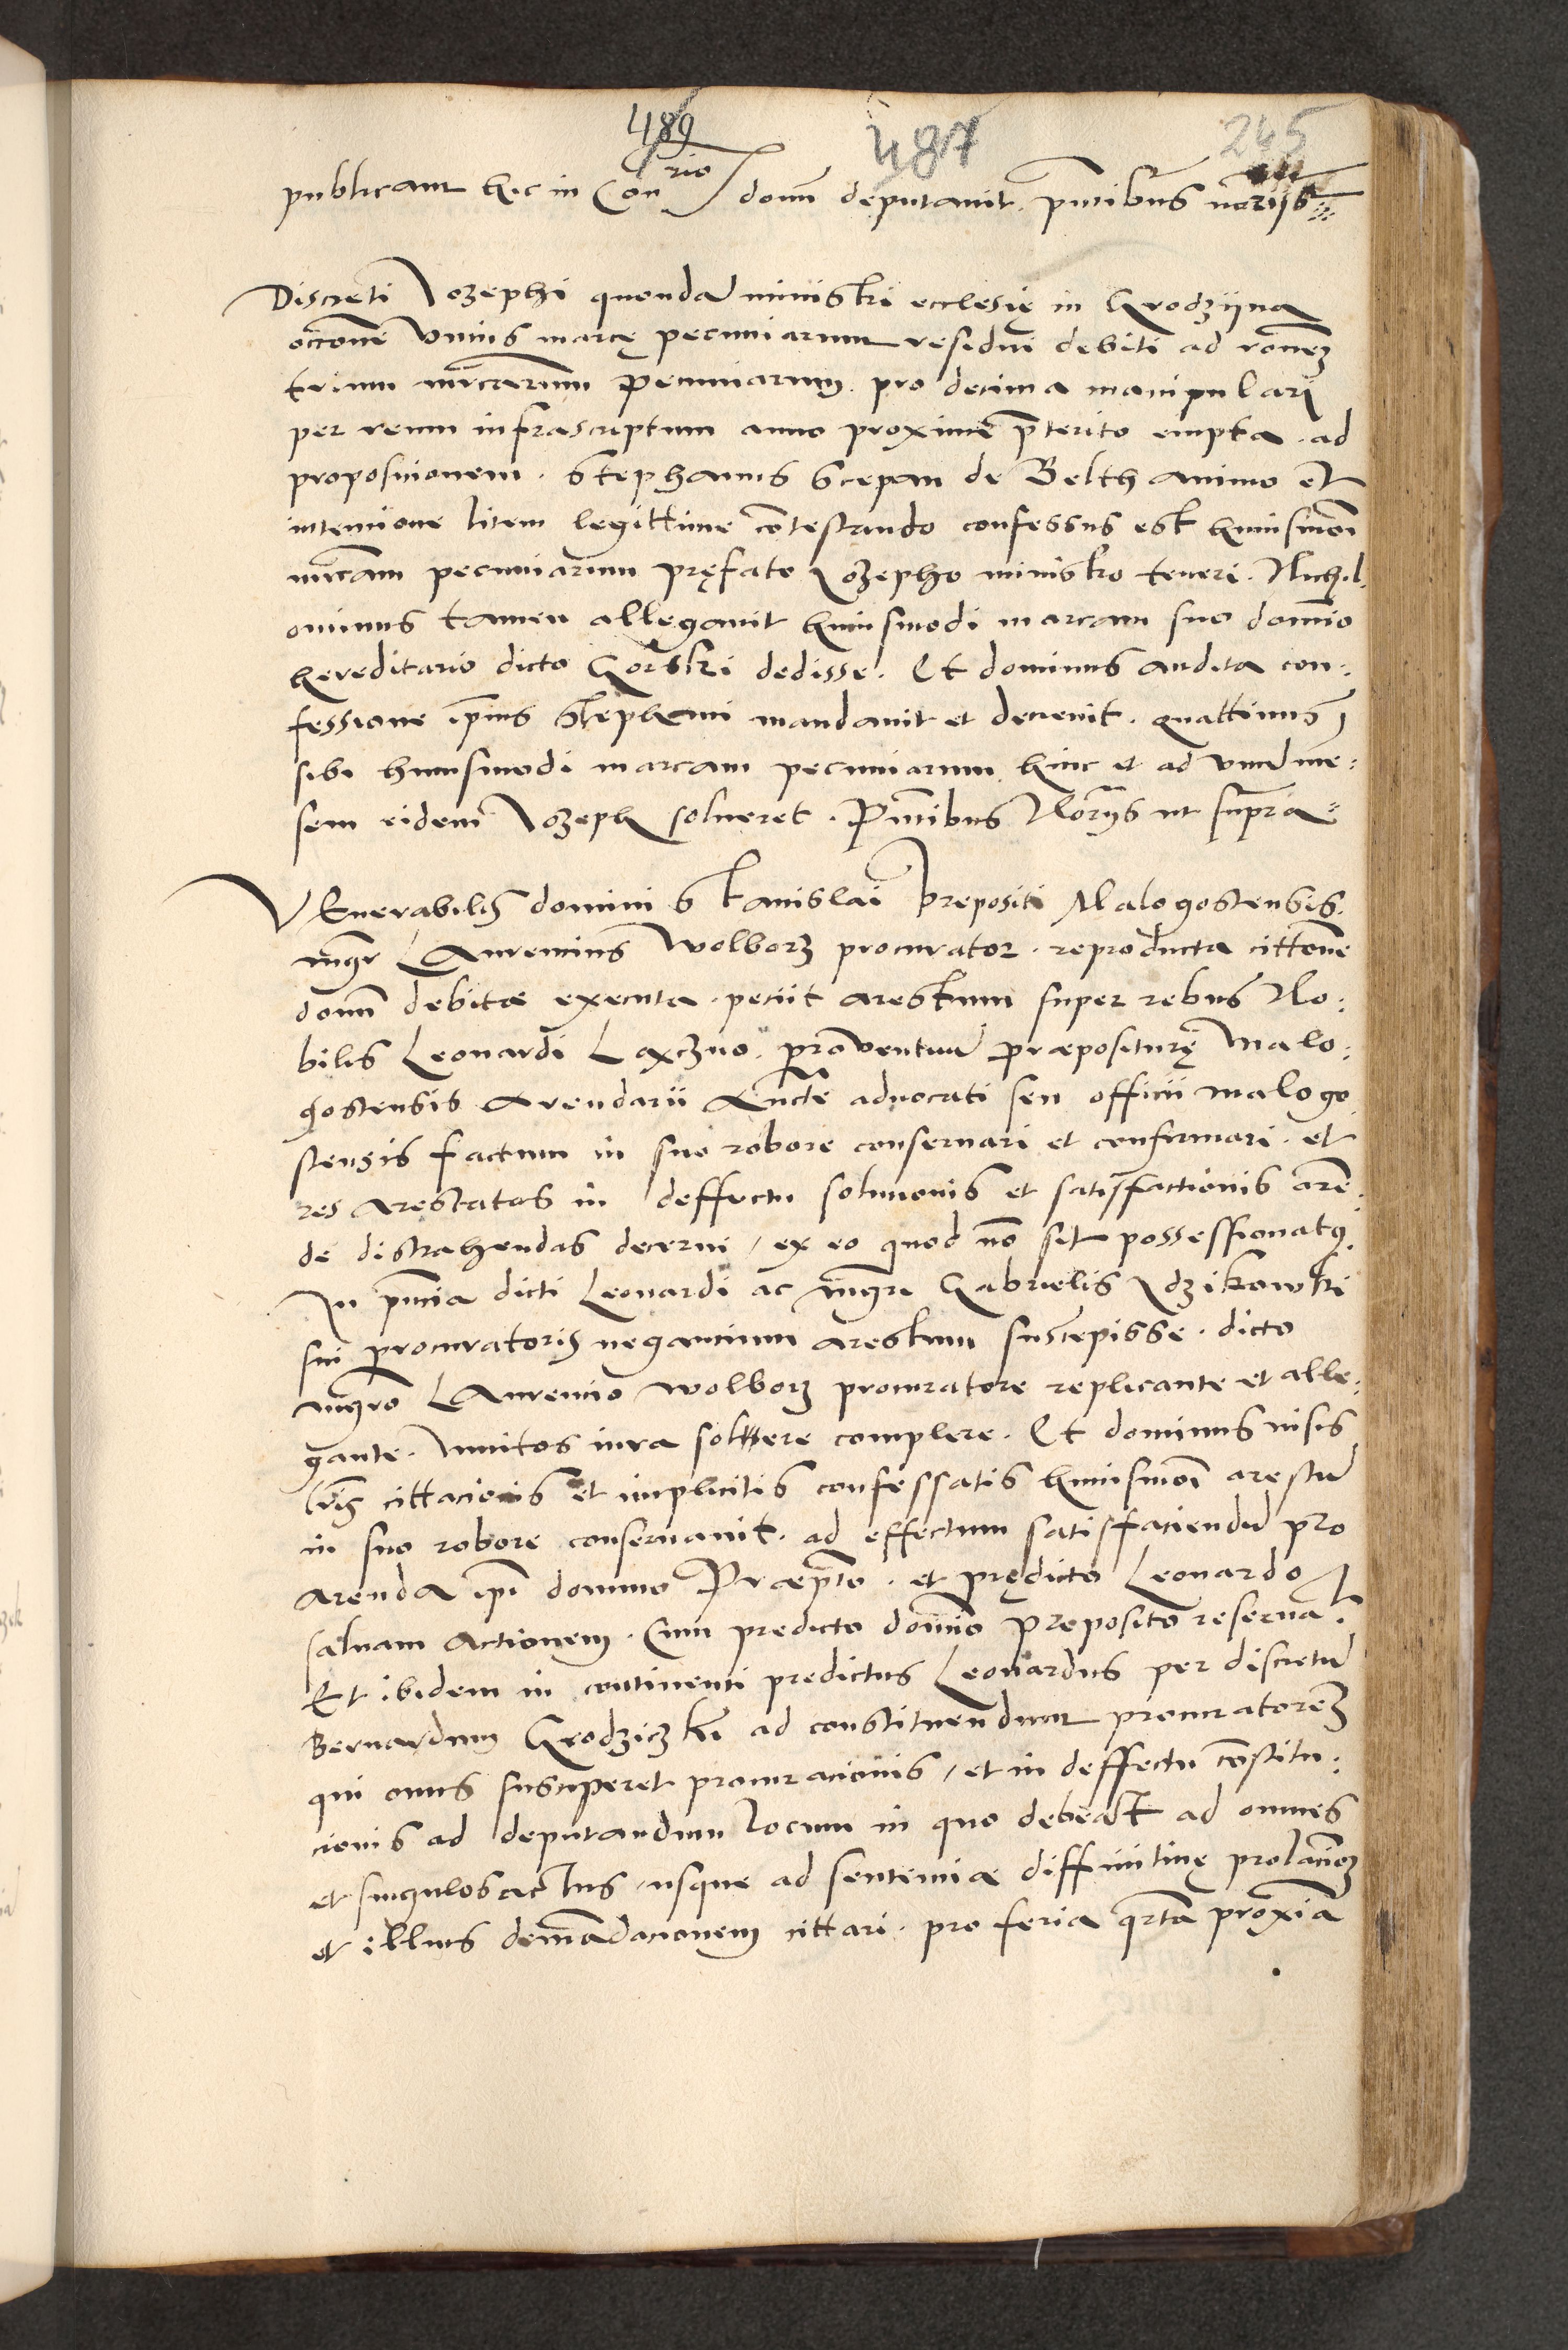 489 487 245
publicam hic in Con^rio domini deputavit. pñtibus notarijs
Discreti Jozephi quondã ministri ecclesię in Grodzijna
occõne unius marcę pecuniarum residui debiti ad rõnem
trium mrcarum pecuniarum. pro decima manipulari
per reum infrascriptum anno proxime pterito empta. ad
proposicionem. Stephanus Sczepan de Belth animo et
intencione litem legittime cõtestando confessus est huiusmõi
mrcam pecuniarum pręfato Jozepho ministro teneri. Nichil-
ominus tamen allegavit huiusmodi marcam suo domĩo
hereditario dicto Gorski dedisse. Et dominus audita con-
fessione ip̃ius Stephani mandavit et decrevit. quattinus
sibi huiusmodi marcam pecuniarum hinc et ad unũ me-
sem eidem Jozeph solveret. Pñtibus Norijs ut supra
VEnerabilis domini Stanislai prepositi Malogostensis.
mgr LAurencius Wolborz procurator. reproducta cittõne
domĩ debitæ executa. peciit arestum super rebus No-
bilis Leonardi Laxczno. proventuũ præpositurę Malo-
gostensis Arendarii Aucte advocati seu officii malogo
stensis factum in suo robore conservari et confirmari. et
res Arestatas in deffectu solucionis et satisfactionis arẽ-
de distrahendas decerni, ex eo quod nõ sit possessionatus.
In pñcia dicti Leonardi ac mgri Gabrielis Idzikowski
sui procuratoris negancium arestum suscepisse. dicto
mgrõ LAurencio wolborz procuratore replicante et alle-
gante. unitos iura solvere complere. Et dominus visis
lrĩs cittacionis et implicitis confessatis huiusmõi arestũ
in suo robore conservavit. ad effectum satisfaciendũ pro
arenda ip̃i domino Præpto. et prędicto Leonardo
salvam Actionem. Cum predicto domĩo Preposito reservat.
Et ibidem in continenti predictus Leonardus per discretũ
Bernardum Grodziczki ad constituendum procuratorem
qui onus susciperet procuracionis, et in deffectu cõstitu-
cionis ad deputandum locum in quo debeat ad omnes
et singulos actus, usque ad sentenciæ diffinitivę prolacionem
et illius demãdacionem cittari. pro feria qrta proxiã